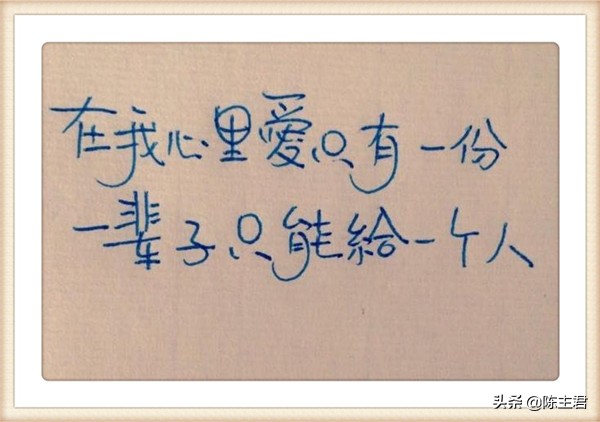 在我心里愛只有一份
一辈子只能給一个人
头条 @陈主君